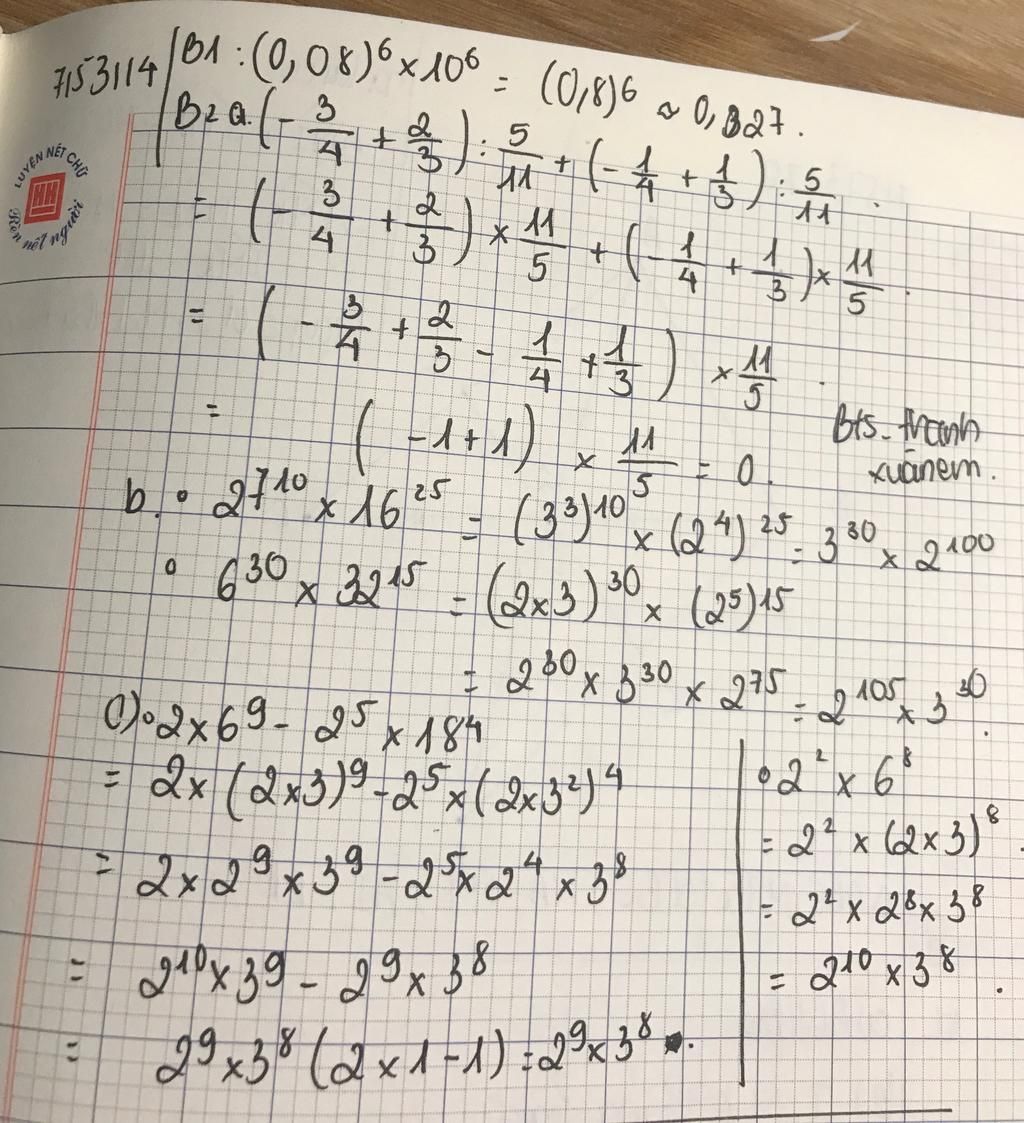 7153114
B1 : (0,08)⁶ × 10⁶ = (0,8)⁶ ≈ 0,327.
B2 a. (- 3/4 + 2/3) : 5/11 + (- 1/4 + 1/3) : 5/11 .
= (- 3/4 + 2/3) × 11/5 + (- 1/4 + 1/3) × 11/5 .
= (- 3/4 + 2/3 - 1/4 + 1/3) × 11/5 .
= (-1+1) × 11/5 = 0.
Bts_thanh
xuânem.
b. • 27¹⁰ × 16²⁵ = (3³)¹⁰ × (2⁴)²⁵ = 3³⁰ × 2¹⁰⁰
• 6³⁰ × 32¹⁵ = (2×3)³⁰ × (2⁵)¹⁵
= 2³⁰ × 3³⁰ × 2⁷⁵ = 2¹⁰⁵ × 3³⁰.
c) • 2×6⁹ - 2⁵ × 18⁴
= 2× (2×3)⁹ - 2⁵ × (2×3²)⁴
= 2×2⁹ × 3⁹ - 2⁵ × 2⁴ × 3⁸
= 2¹⁰ × 3⁹ - 2⁹ × 3⁸
= 2⁹ × 3⁸ (2 × 1 - 1) = 2⁹ × 3⁸ .
• 2² × 6⁸
= 2² × (2×3)⁸ .
= 2² × 2⁸ × 3⁸
= 2¹⁰ × 3⁸ .
LUYỆN NÉT CHỮ
HH
Rèn nết người